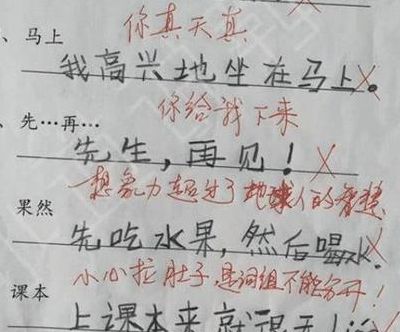 你真天真
、马上
我高兴地坐在马上。
你给我下来
、先…再…
先生，再见！
想象力超过了地球人的智慧
果然
先吃水果，然后喝水
小心拉肚子，是词组不能分开！
课本
上课本来就